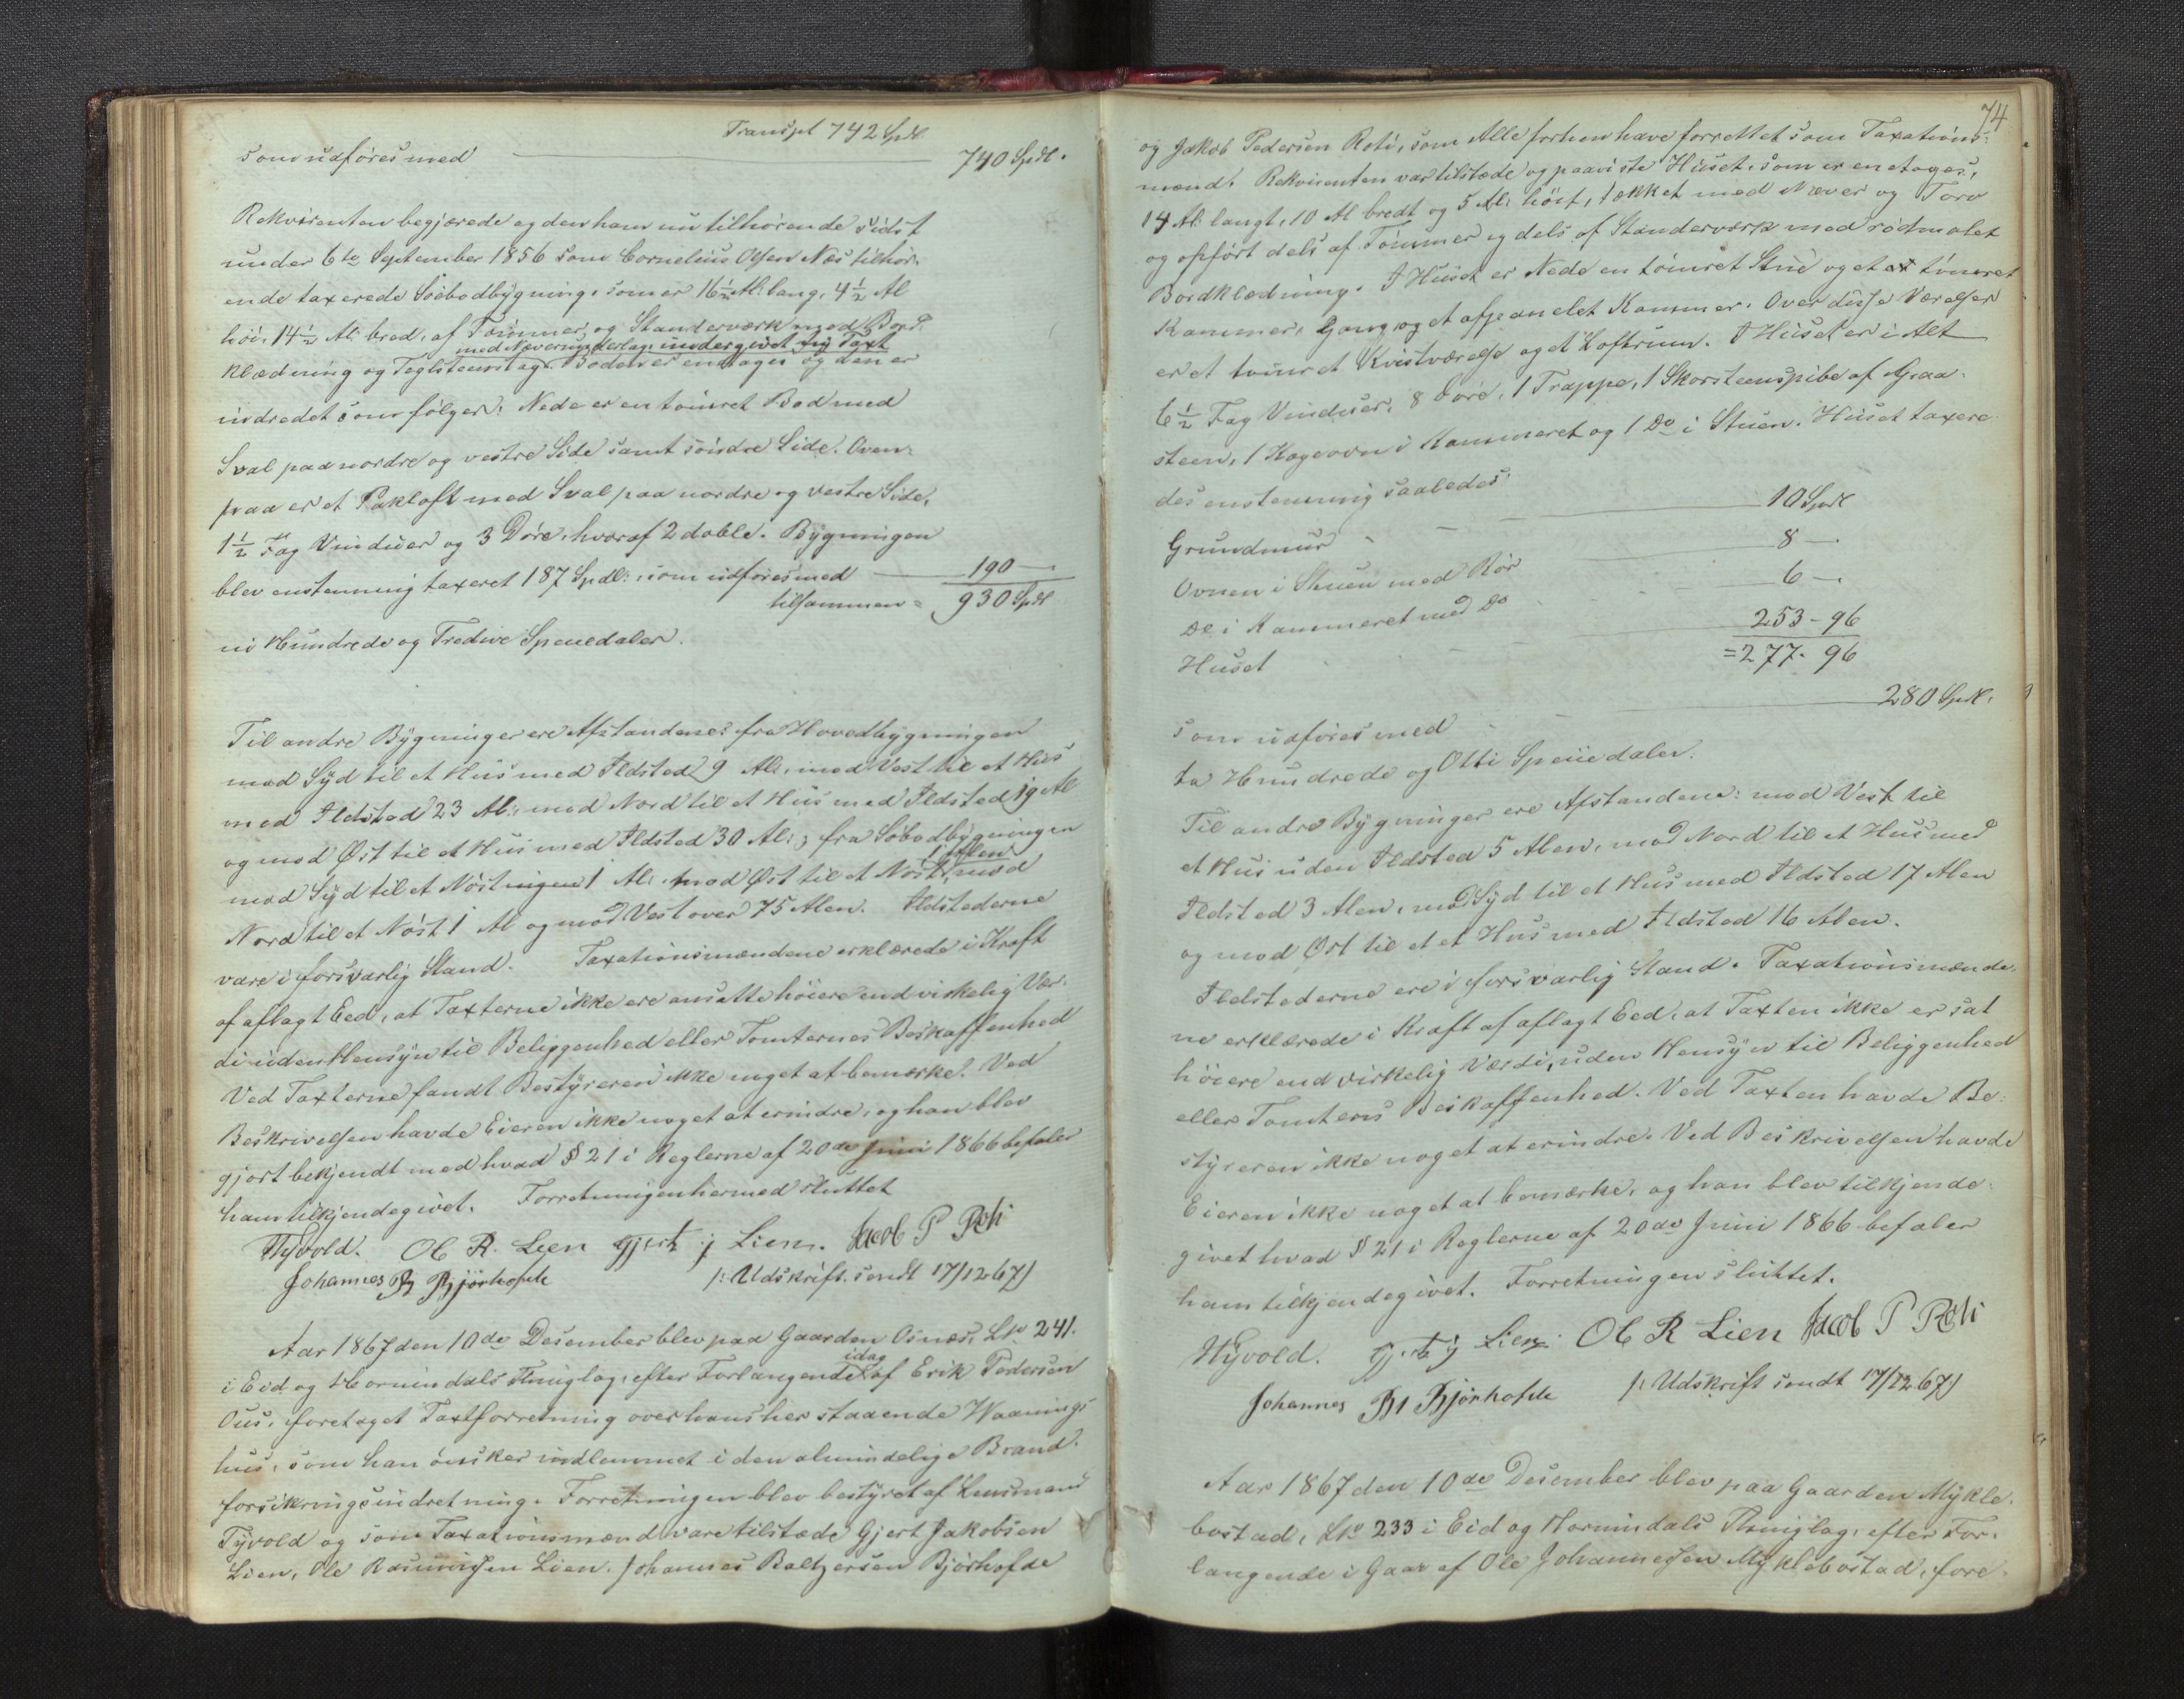 Transpt 742 Spdl.
som udføres med 740 Spdl.
Rekvirenten begjærede og den ham nu tilhørende sidst
under 6te September 1856 som Cornelius Olsen Næs tilhør-
ende taxerede Søebodbygning, som er 16½ Al. lang, 4½ Al
høi, 14½ Al. bred, af Tømmer og Standerværk med Bord-
med Næverunderlag, undergivet ny Taxt
klædning og Teglsteenstag. Boden er en etages og den er
indredet som følger: Nede er en tømret Bod med
Sval paa nordre og vestre Side samt søndre Side. Oven-
paa er et Pakloft med Sval paa nordre og vestre Side,
1½ Fag Vinduer og 3 Døre, hvoraf 2 doble. Bygningen
blev enstemmig taxeret 187 Spdl., som udføres med 190 —
tilsammen = 930 Spdl
ni Hundrede og Tredive Speciedaler.
Til andre Bygninger ere Afstandene: fra Hovedbygningen
mod Syd til et Hus med Ildsted 9 Al., mod Vest til et Hus
med Ildsted 23 Al., mod Nord til et Hus med Ildsted 19 Al
og mod Øst til et Hus med Ildsted 30 Al.; fra Søbodbygningen
1 Alen
mod Syd til et Nøst ingen 1 Al. mod Øst til et Nøst, mod
Nord til et Nøst 1 Al og mod Vest over 75 Alen. Ildstederne
vare i forsvarlig Stand. Taxationsmændene erklærede i Kraft
af aflagt Eed, at Taxterne ikke ere ansatte høiere end virkelig Vær-
di uden Hensyn til Beliggenhed eller Tomternes Beskaffenhed
Ved Taxterne fandt Bestyreren ikke noget at bemærke. Ved
Beskrivelsen havde Eieren ikke noget at erindre, og han blev
gjort bekjendt med hvad § 21 i Reglerne af 20de Juni 1866 befaler
ham tilkjendegivet. Forretningen hermed sluttet
Tyvold. Ol R. Lien Gjert J Lien. Jacob P Roti
Johannes B Bjørhofde /: Udskrift sendt 17/12 67/
Aar 1867 den 10de Desember blev paa Gaarden Osnæs, Lo 241.
idag
i Eid og Hornindals Thinglag, efter Forlangende af Erik Pedersen
Ous, foretaget Taxtforretning over hans her staaende Waanings-
hus, som han ønsker indlemmet i den almindelige Brand-
forsikringsindretning. Forretningen blev bestyret af Lensmand
Tyvold og som Taxationsmænd vare tilstæde Gjert Jakobsen
Lien, Ole Rasmussen Lien, Johannes Baltzersen Bjørhofde
74
og Jakob Pedersen Roti, som Alle forhen have forrettet som Taxations-
mænd. Rekvirenten var tilstæde og paaviste Huset, som er en etages,
14 Al. langt, 10 Al bredt og 5 Al. høit, tækket med Næver og Torv
og opført dels af Tømmer og dels af Standerværk med rødmalet
Bordklædning. I Huset er Nede en tømret Stue og et tømret
Kammer, Gang og et afpanelet Kammer. Over disse Værelser
er et tømret Kvistværelse og et Loftrum. I Huset er i Alt
6½ Fag Vinduer, 8 Døre, 1 Trappe, 1 Skorsteenspibe af Graa-
steen, 1 Kogeovn i Kammeret og 1 Do i Stuen. Huset taxere-
des enstemmig saaledes:
Grundmur 10 Spdl
Ovnen i Stuen med Rør 8 —
Do i Kammeret med Do 6 —
Huset 253 - 96
= 277 - 96
som udføres med 280 Spdl.
to Hundrede og Otti Speciedaler.
Til andre Bygninger ere Afstandene: mod Vest til
et Hus uden Ildsted 5 Alen, mod Nord til et Hus med
Ildsted 3 Alen, mod Syd til et Hus med Ildsted 17 Alen
og mod Øst til et et Hus med Ildsted 16 Alen.
Ildstederne ere i forsvarlig Stand. Taxationsmænde-
ne erklærede i Kraft af aflagt Eed, at Taxten ikke er sat
høiere end virkelig Værdi, uden Hensyn til Beliggenhed
eller Tomtens Beskaffenhed. Ved Taxten havde Be-
styreren ikke noget at erindre. Ved Beskrivelsen havde
Eieren ikke noget at bemærke, og han blev tilkjende-
givet hvad § 21 i Reglerne af 20de Juni 1866 befaler
ham tilkjendegivet. Forretningen sluttet.
Tyvold. Gjert J Lien. Ol R Lien Jacob P Roti
Johannes B Bjørhofde /: Udskrift sendt 17/12 67/
Aar 1867 den 10de Desember blev paa Gaarden Mykle-
bostad, Lo 233 i Eid og Hornindals Thinglag, efter For-
langende i Gaar af Ole Johannesen Myklebostad, fore-